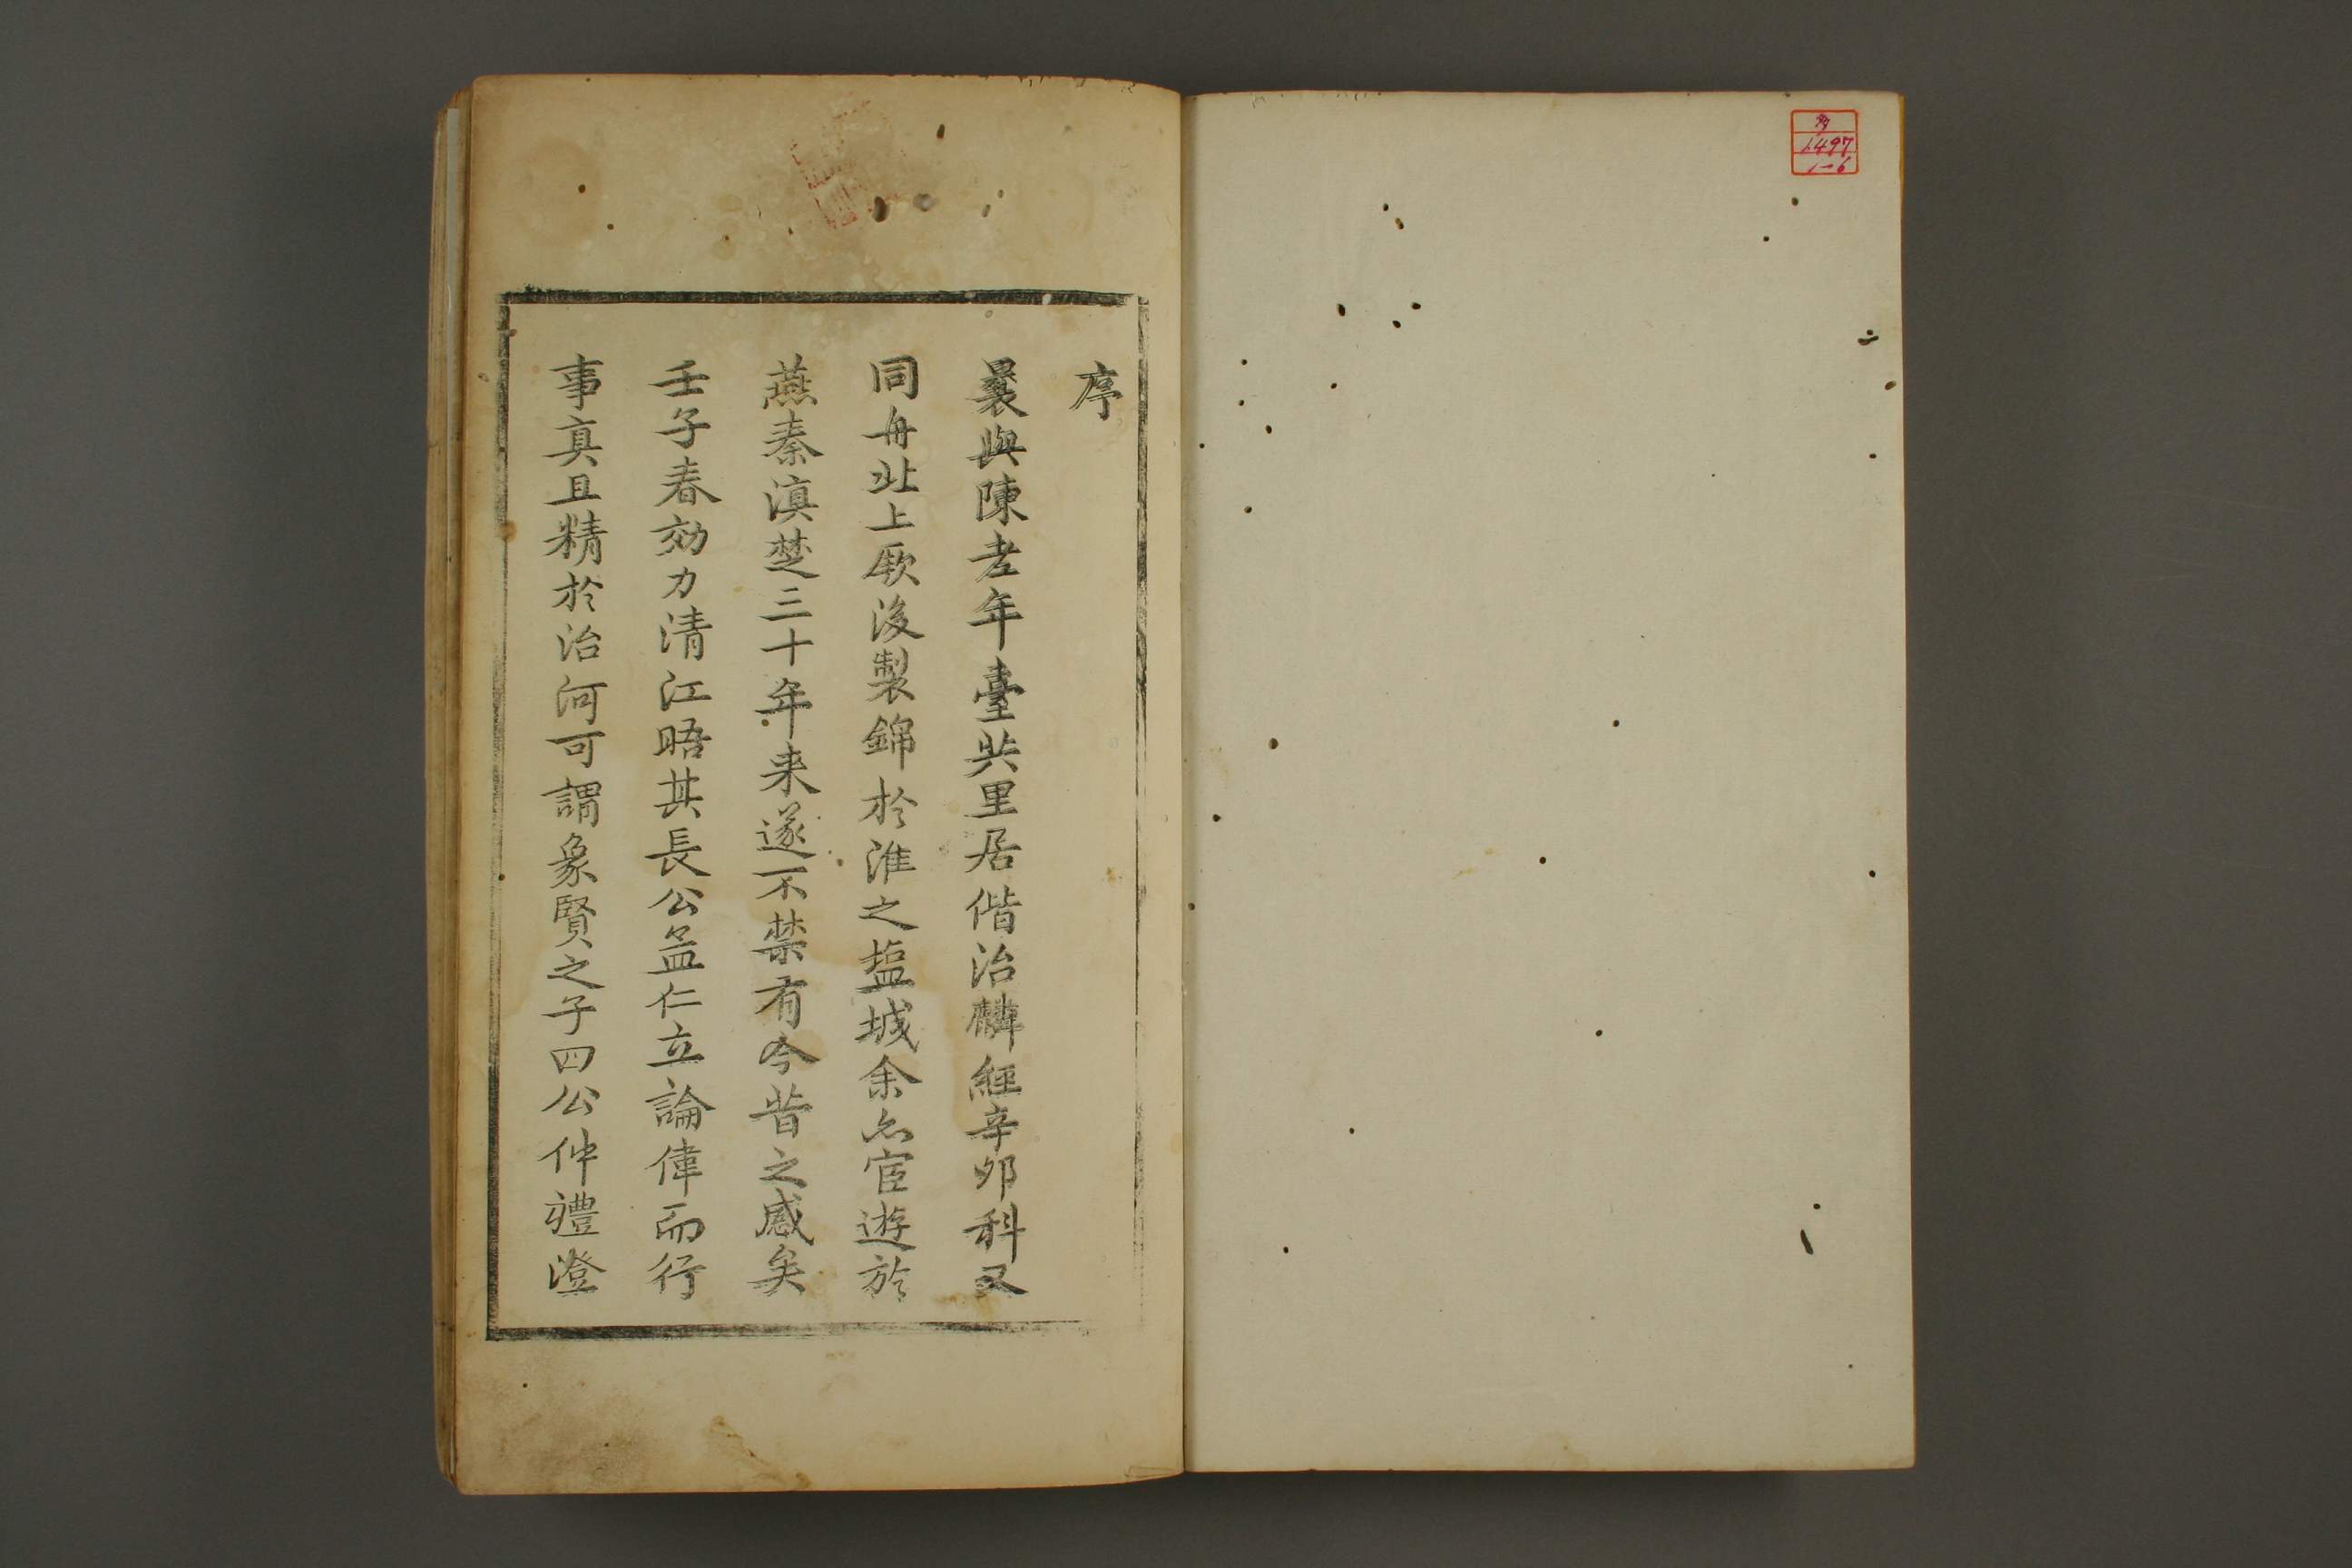 序
曩與陳老年臺共里居偕治麟經辛卯科又
同舟北上厥後製錦於淮之塩城余亦宦遊於
燕秦滇楚三十年来遂不禁有今昔之感矣
壬子春効力清江晤其長公益仁立論偉而行
事真且精於治河可謂象賢之子四公仲禮澄
1497
1-6